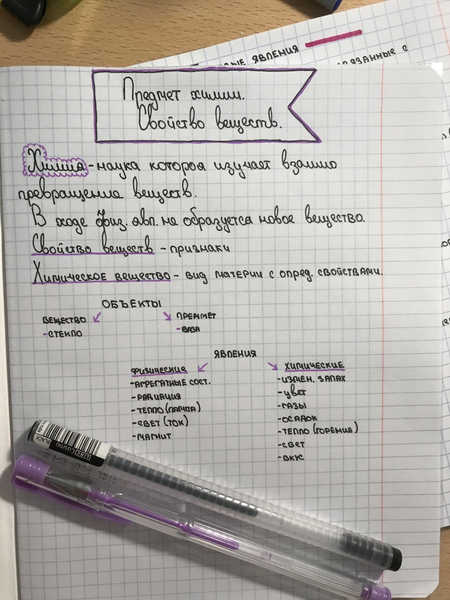 ЫЕ ЯВЛЕНИЯ
ЯЗАННЫЕ С
Предмет химии.
Свойство веществ.
Химия - наука которая изучает взаимо
превращение веществ.
В ходе физ. явл. не образуется новое вещество.
Свойство веществ - признаки
Химическое вещество - вид материи с опред. свойствами.
ОБЪЕКТЫ
ВЕЩЕСТВО
ПРЕДМЕТ
-СТЕКЛО
-ВАЗА
ЯВЛЕНИЯ
ФИЗИЧЕСКИЕ
ХИМИЧЕСКИЕ
-АГРЕГАТНЫЕ СОСТ.
-ИЗМЕН. ЗАПАХ
-РАДИАЦИЯ
-ЦВЕТ
-ТЕПЛО (ЛАМПА)
-ГАЗЫ
-СВЕТ (ТОК)
-ОСАДОК
-МАГНИТ
-ТЕПЛО (ГОРЕНИЕ)
-СВЕТ
-ВКУС